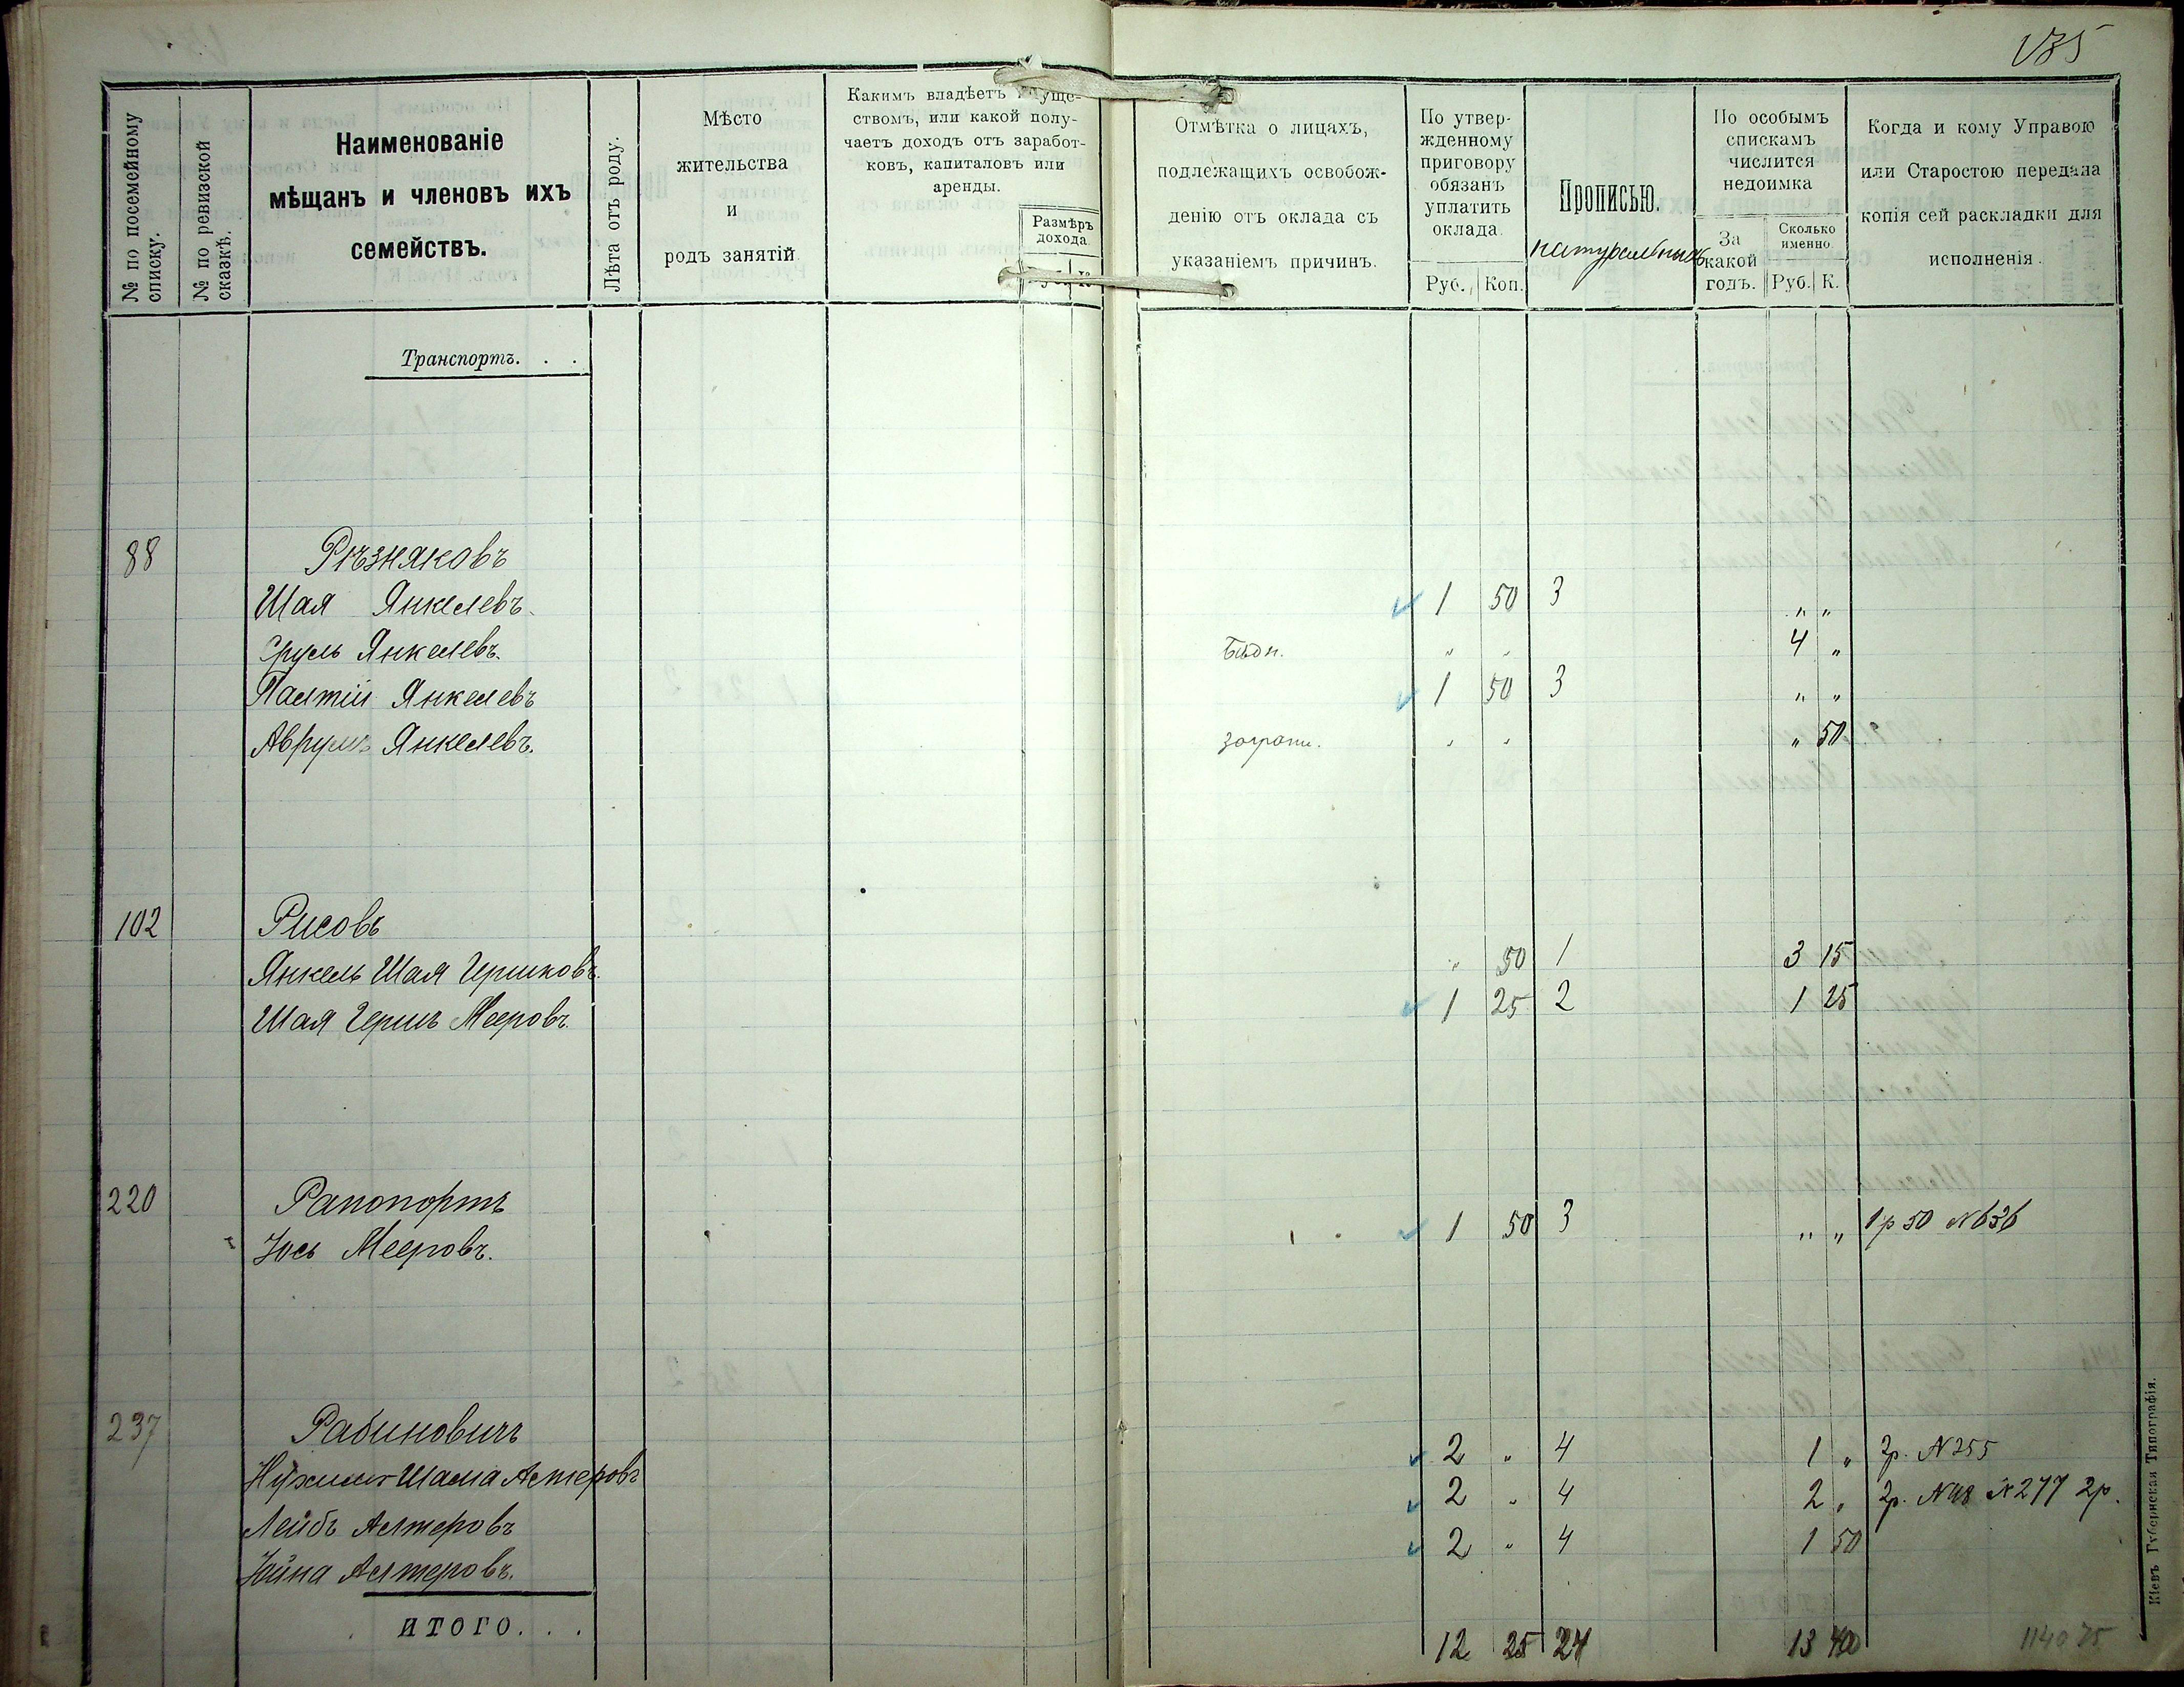 185
№ по посемейному списку.
№ по ревизской сказкѣ.
Наименованіе
мѣщанъ и членовъ ихъ
семействъ.
Лѣта отъ роду.
Мѣсто
жительства
и
родъ занятій
Какимъ владѣетъ
ствомъ, или какой полу-
чаетъ доходъ отъ заработ-
ковъ, капиталовъ или
аренды.
Размѣръ
дохода
Отмѣтка о лицахъ,
подлежащихъ освобож-
денію отъ оклада съ
указаніемъ причинъ.
По утвер-
жденному
приговору
обязанъ
уплатить
оклада
Руб. Коп.
Прописью.
натуральныхъ
По особымъ
спискамъ
числится
недоимка
За
какой
годъ.
Сколько
именно
Руб. К.
Когда и кому Управою
или Старостою передана
копія сей раскладки для
исполненія.
Транспортъ. . .
88 Рѣзняковъ
Шая Янкелевъ. 1 50 3 „ „
Сруль Янкелевъ. Бѣдн. „ „ 4 „
Палтій Янкелевъ 1 50 3 „ „
Аврумъ Янкелевъ. загран. „ „ „ 50
102 Рисовъ
Янкель Шая Гершковъ. „ 50 1 3 15
Шая Гершъ Мееровъ. 1 25 2 1 25
220 Рапопортъ
Іось Мееровъ. 1 50 3 „ „ 1р 50 №636
237 Рабиновичъ
Шама Алтеровъ 2 „ 4 1 „ 2р. №255
Лейбъ Алтеровъ 2 „ 4 2 „ 2р. №48 №277 2р.
Іойна Алтеровъ. 2 „ 4 1 50
ИТОГО. . . 12 25 24 13 40
1140 75
Кіевъ Губернская Типографія.